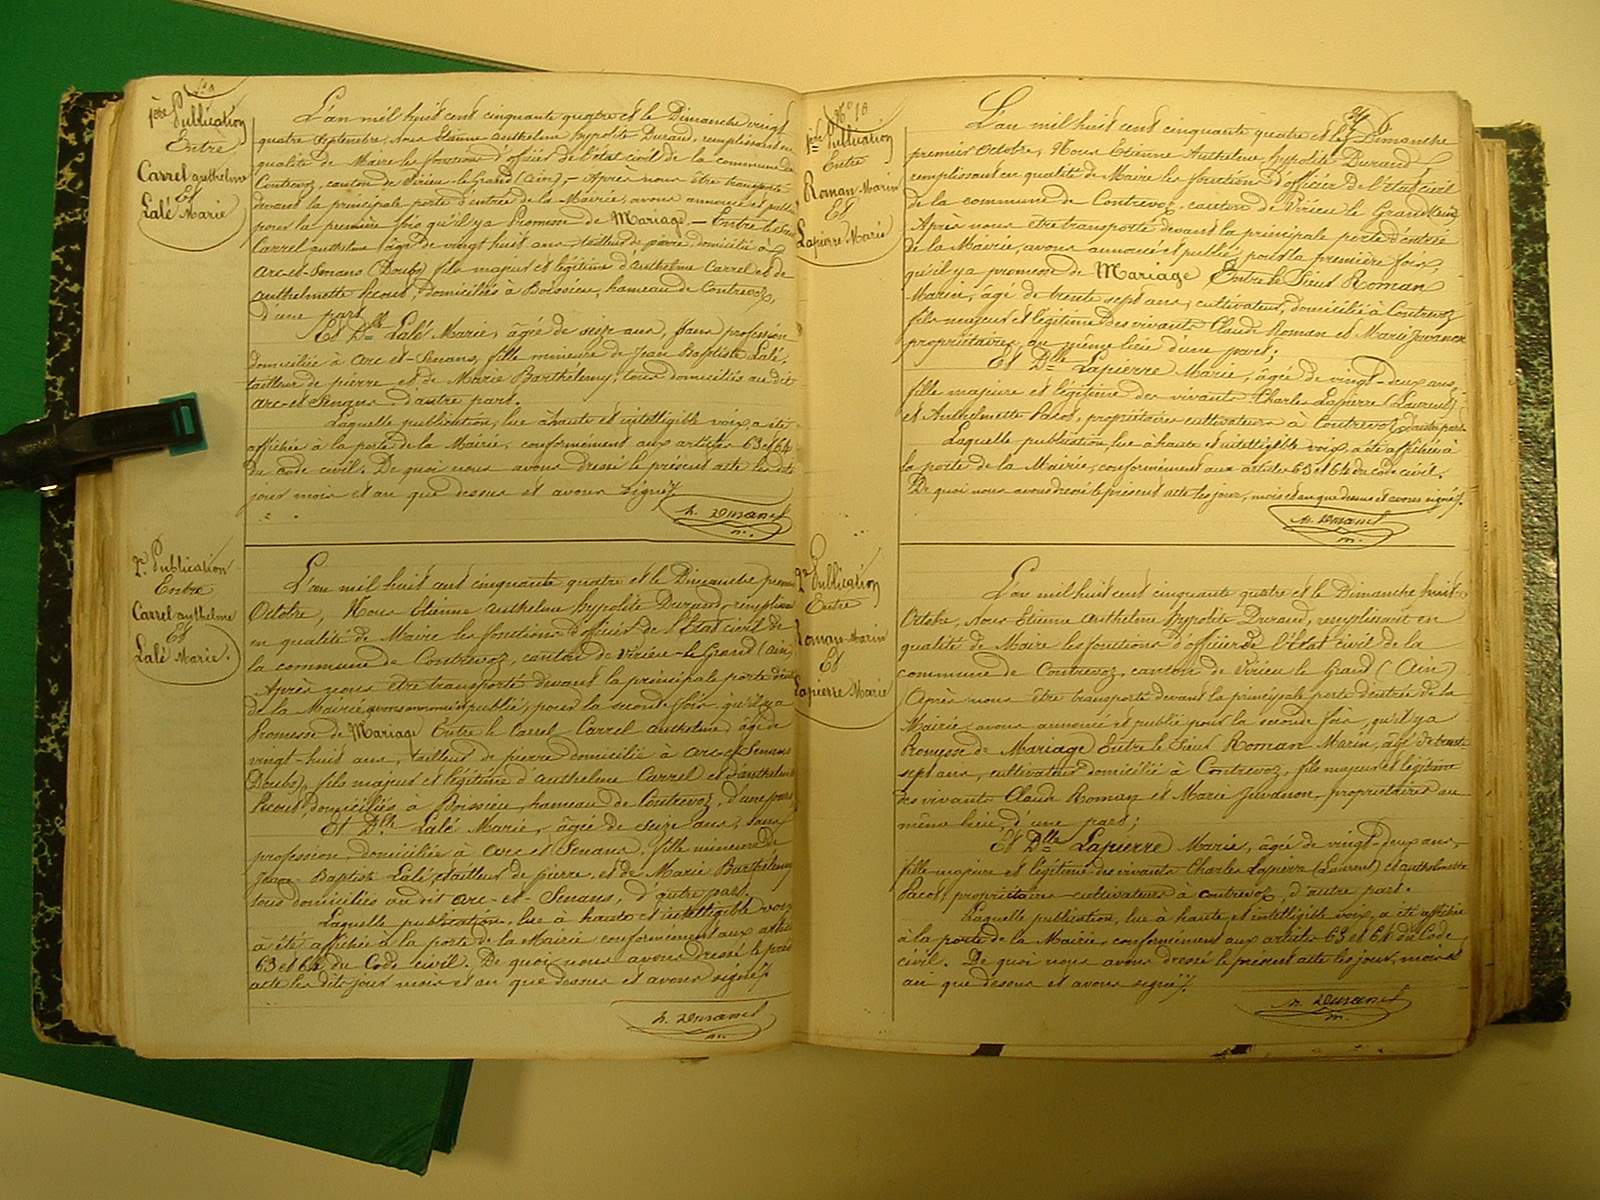 1ère Publication
Entre
Carrel anthelme
Et
Lalé Marie
L'an mil huit cent cinquante quatre et le Dimanche vingt
quatre Septembre, Nous Etienne anthelme hypolite Durand, remplissant en
qualité de Maire les fonctions d'officier de l'état civil de la commune de
Contrevoz, canton de Virieu-le-Grand (Ain), - Après nous être transporté
devant la principale porte d'entrée de la Mairie, avons annoncé et publié
pour la première fois qu'il y a Promesse de Mariage - Entre le Sieur
Carrel anthelme âgé de vingt huit ans, tailleur de pierre, domicilié à
arc-et-Senans (Doubs) fils majeur et légitime d'anthelme Carrel et de
anthelmette domiciliés à Boissieu, hameau de Contrevoz,
d'une part,
Et Dlle Lalé Marie, âgée de seize ans, sans profession
domiciliée à arc et-Senans, fille mineure de Jean Baptiste Lalé,
tailleur de pierre et de Marie Barthélemy, tous domiciliés au dit
arc-et Senans, d'autre part.
Laquelle publication, lue à haute et intelligible voix, a été
affichée à la porte de la Mairie, conformément aux articles 63 et 64
du code civil. De quoi nous avons dressé le présent acte les dits
jour mois et an que dessus et avons signé /.
h. Durand
m.
2e Publication
Entre
Carrel anthelme
Et
Lalé Marie.
L'an mil huit cent cinquante quatre et le Dimanche premier
Octobre, Nous Etienne anthelme hypolite Durand, remplissant
en qualité de Maire les fonctions d'officier de l'Etat civil de
la commune de Contrevoz, canton de Virieu-le-Grand (ain)
Après nous être transporté devant la principale porte d'entrée
de la Mairie, avons annoncé et publié, pour la seconde fois, qu'il y a
Promesse de Mariage Entre le Carrel Carrel anthelme âgé de
vingt-huit ans, tailleur de pierre domicilié à arc-et Senans
(Doubs), fils majeur et légitime d'anthelme Carrel et d'anthelmette
domiciliés à Boissieu, hameau de Contrevoz, d'une part
Et Dlle Lalé Marie, âgée de seize ans, sans
profession, domiciliée à arc et Senans, fille mineure de
Jean-Baptiste Lalé, tailleur de pierre, et de Marie Barthélemy
tous domiciliés au dit arc-et-Senans, d'autre part.
Laquelle publication, lue à haute et intelligible voix
a été affichée à la porte de la Mairie conformément aux articles
63 et 64 du Code civil. De quoi nous avons dressé le présent
acte les dits jour mois et an que dessus et avons signé /.
h. Durand
m.
N° 10
1ère Publication
Entre
Roman-Marin
Et
Lapierre Marie
L'an mil huit cent cinquante quatre et le Dimanche
premier Octobre, Nous Etienne Anthelme hypolite Durand
remplissant en qualité de Maire les fonctions d'officier de l'état civil
de la commune de Contrevoz, canton de Virieu le Grand (Ain)
Après nous être transporté devant la principale porte d'entrée
de la Mairie, avons annoncé et publié, pour la première fois,
qu'il y a promesse de Mariage Entre le Sieur Roman
Marin, âgé de trente sept ans, cultivateur, domicilié à Contrevoz
fils majeur et légitime des vivants Claude Roman et Marie Juvanon
propriétaires, au même lieu d'une part;
Et Dlle Lapierre Marie, âgée de vingt-deux ans,
fille majeure et légitime des vivants Charles Lapierre (Laurent)
et Anthelmette Pacot, propriétaires cultivateurs à Contrevoz, d'autre part
Laquelle publication, lue à haute et intelligible voix, a été affichée à
la porte de la Mairie, conformément aux articles 63 et 64 du code civil.
De quoi nous avons dressé le présent acte les jour, mois et an que dessus et avons signé /.
h. Durand
m.
2e Publication
Entre
Roman-Marin
Et
Lapierre Marie
L'an mil huit cent cinquante quatre et le Dimanche huit
Octobre, Nous Etienne Anthelme hypolite Durand, remplissant en
qualité de Maire les fonctions d'officier de l'Etat civil de la
commune de Contrevoz, canton de Virieu le Grand (Ain)
Après nous être transporté devant la principale porte d'entrée de la
Mairie, avons annoncé et publié pour la seconde fois, qu'il y a
Promesse de Mariage Entre le Sieur Roman Marin, âgé de trente
sept ans, cultivateur domicilié à Contrevoz, fils majeur et légitime
des vivants Claude Roman et Marie Juvanon, propriétaires au
même lieu, d'une part;
Et Dlle Lapierre Marie, âgée de vingt-deux ans,
fille majeure et légitime des vivants Charles Lapierre (Laurent) et anthelmette
Pacot, propriétaires-cultivateurs à Contrevoz, d'autre part.
Laquelle publication, lue à haute et intelligible voix, a été affichée
à la porte de la Mairie, conformément aux articles 63 et 64 du Code
civil. De quoi nous avons dressé le présent acte les jour, mois et
an que dessus et avons signé /.
h. Durand
m.